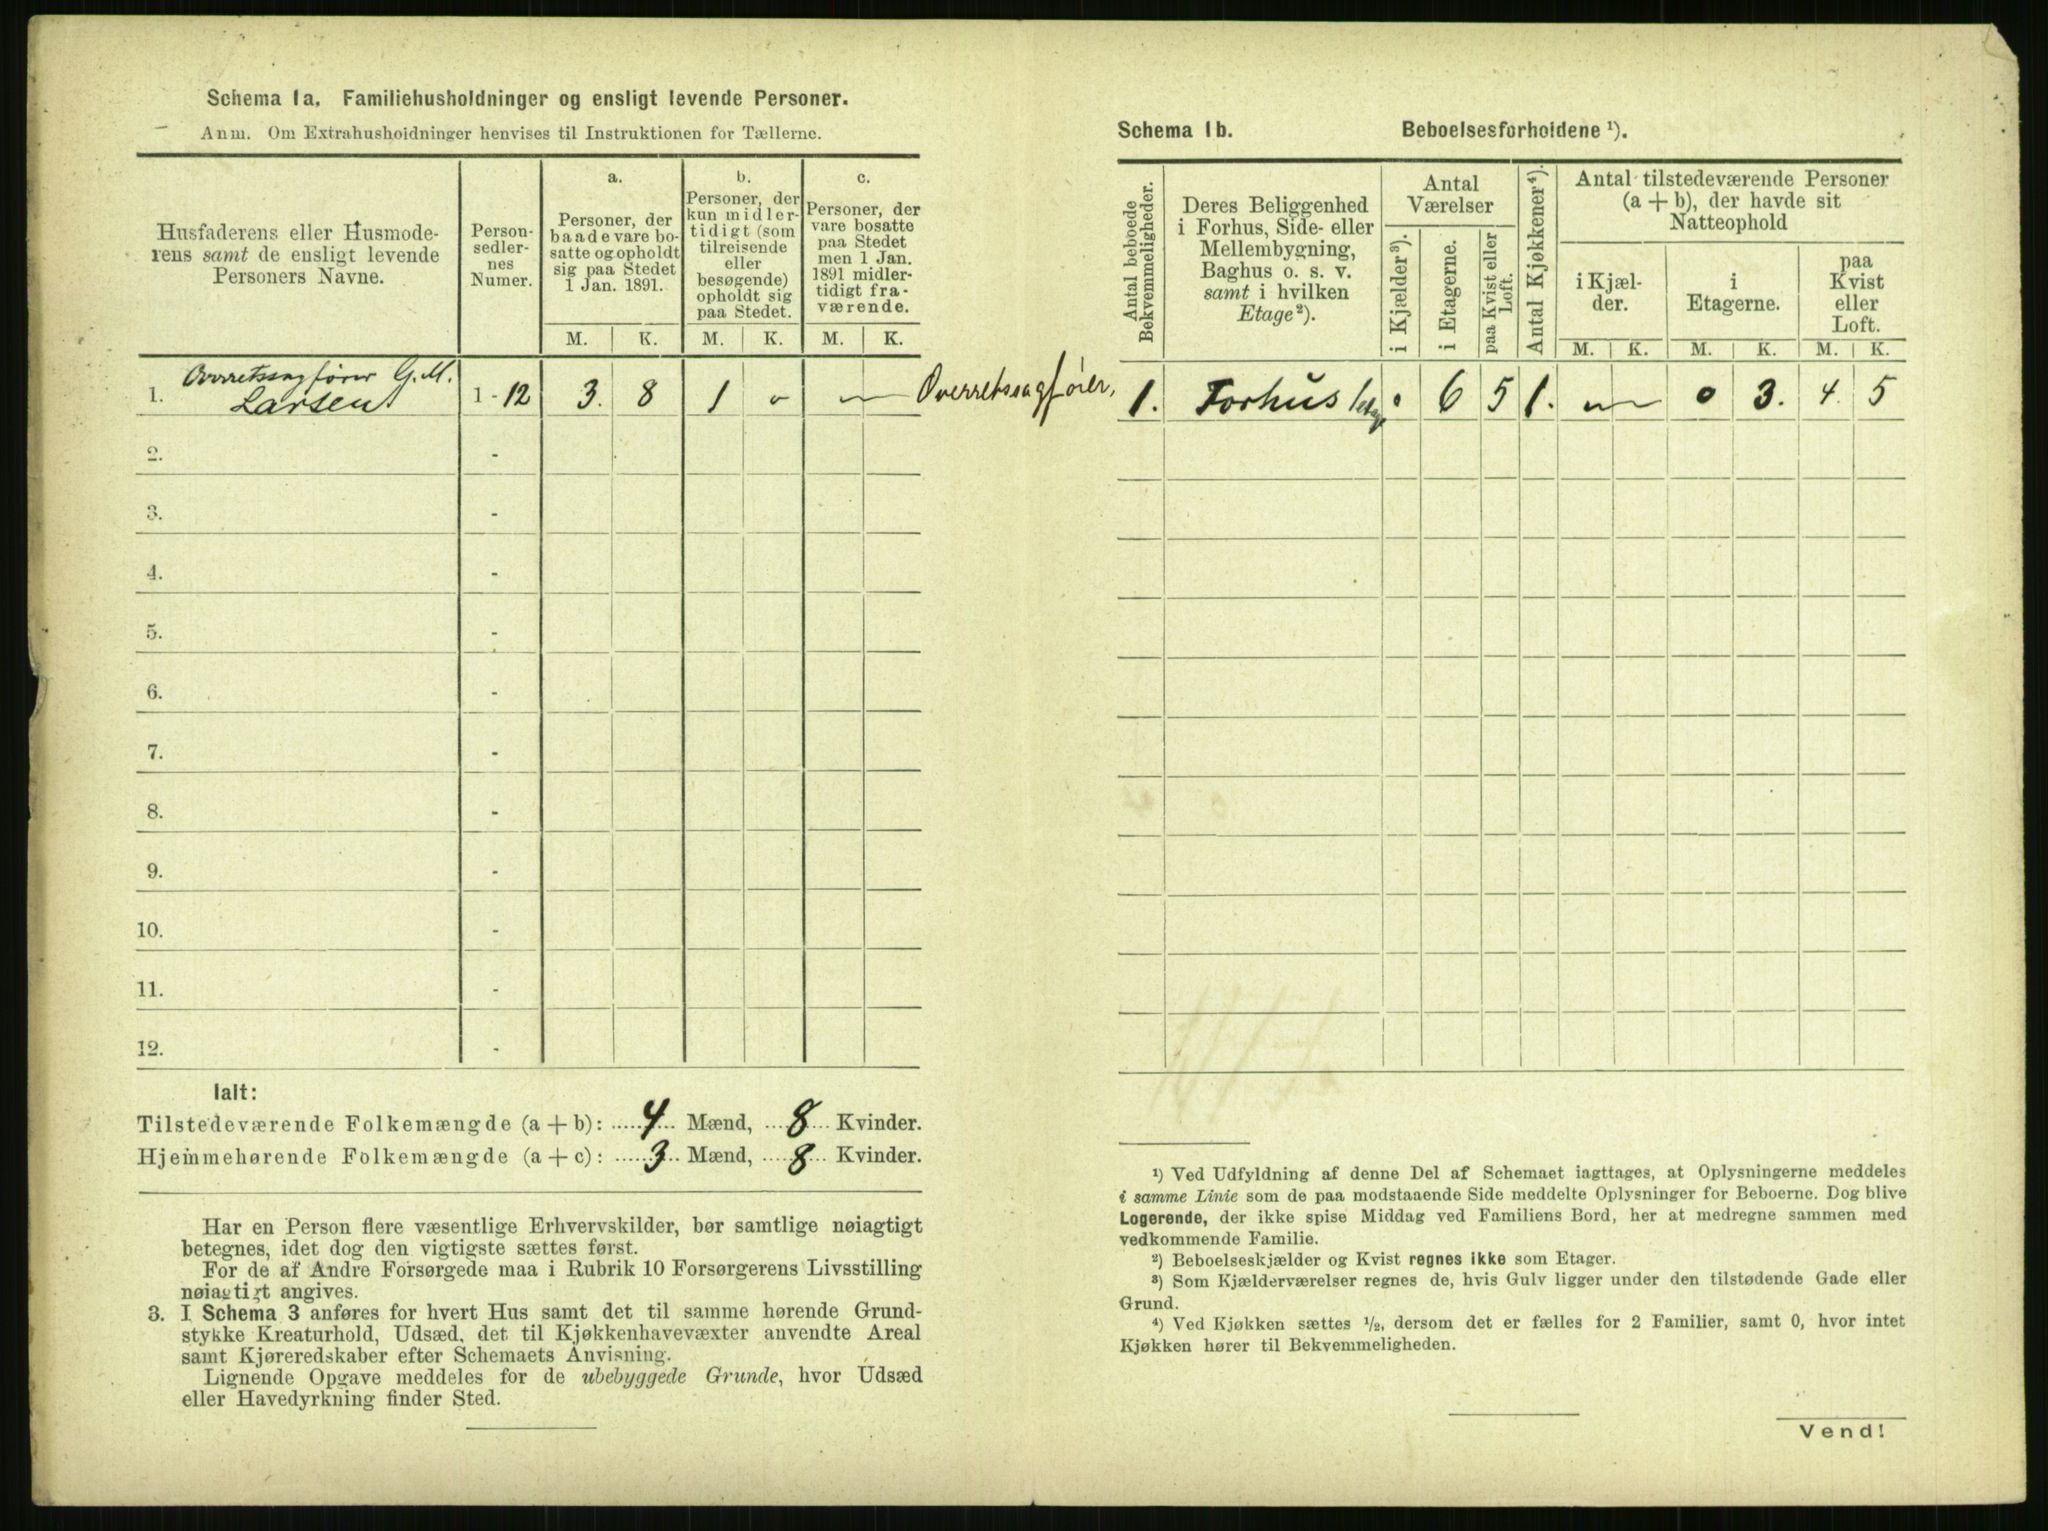 Schema 1a. Familiehusholdninger og ensligt levende Personer.
Anm. Om Extrahusholdninger henvises til Instruktionen for Tællerne.
Husfaderens eller Husmode-
rens samt de ensligt levende
Personers Navne.
Person-
sedler-
nes
Numer.
a.
Personer, der
baade vare bo-
satte og opholdt
sig paa Stedet
1 Jan. 1891.
b.
Personer, der
kun midler-
tidigt (som
tilreisende
eller
besøgende)
opholdt sig
paa Stedet.
c.
Personer, der
vare bosatte
paa Stedet
men 1 Jan.
1891 midler-
tidigt fra-
værende.
M. K. M. K. M. K.
1. Overretssagfører G. M.
Larsen 1 - 12 3. 8 1 0 — Overretssagfører,
2. -
3. -
4. -
5. -
6. -
7. -
8. -
9. -
10. -
11. -
12. -
Ialt:
Tilstedeværende Folkemængde (a + b): 4 Mænd, 8 Kvinder.
Hjemmehørende Folkemængde (a + c): 3 Mænd, 8 Kvinder.
Har en Person flere væsentlige Erhvervskilder, bør samtlige nøiagtigt
betegnes, idet dog den vigtigste sættes først.
For de af Andre Forsørgede maa i Rubrik 10 Forsørgerens Livsstilling
nøiagtigt angives.
3. I Schema 3 anføres for hvert Hus samt det til samme hørende Grund-
stykke Kreaturhold, Udsæd, det til Kjøkkenhavevæxter anvendte Areal
samt Kjøreredskaber efter Schemaets Anvisning.
Lignende Opgave meddeles for de ubebyggede Grunde, hvor Udsæd
eller Havedyrkning finder Sted.
Schema 1b. Beboelsesforholdene ¹).
Antal beboede
Bekvemmeligheder.
Deres Beliggenhed
i Forhus, Side- eller
Mellembygning,
Baghus o. s. v.
samt i hvilken
Etage²).
Antal
Værelser
i Kjælder³).
i Etagerne.
paa Kvist eller
Loft.
Antal Kjøkkener⁴).
Antal tilstedeværende Personer
(a + b), der havde sit
Natteophold
i Kjæl-
der.
i
Etagerne.
paa
Kvist
eller
Loft.
M. K. M. K. M. K.
1. Forhus 1 etage 0 6 5 1. — 0 3. 4. 5
¹) Ved Udfyldning af denne Del af Schemaet iagttages, at Oplysningerne meddeles
i samme Linie som de paa modstaaende Side meddelte Oplysninger for Beboerne. Dog blive
Logerende, der ikke spise Middag ved Familiens Bord, her at medregne sammen med
vedkommende Familie.
²) Beboelseskjælder og Kvist regnes ikke som Etager.
³) Som Kjælderværelser regnes de, hvis Gulv ligger under den tilstødende Gade eller
Grund.
⁴) Ved Kjøkken sættes ¹/₂, dersom det er fælles for 2 Familier, samt 0, hvor intet
Kjøkken hører til Bekvemmeligheden.
Vend!